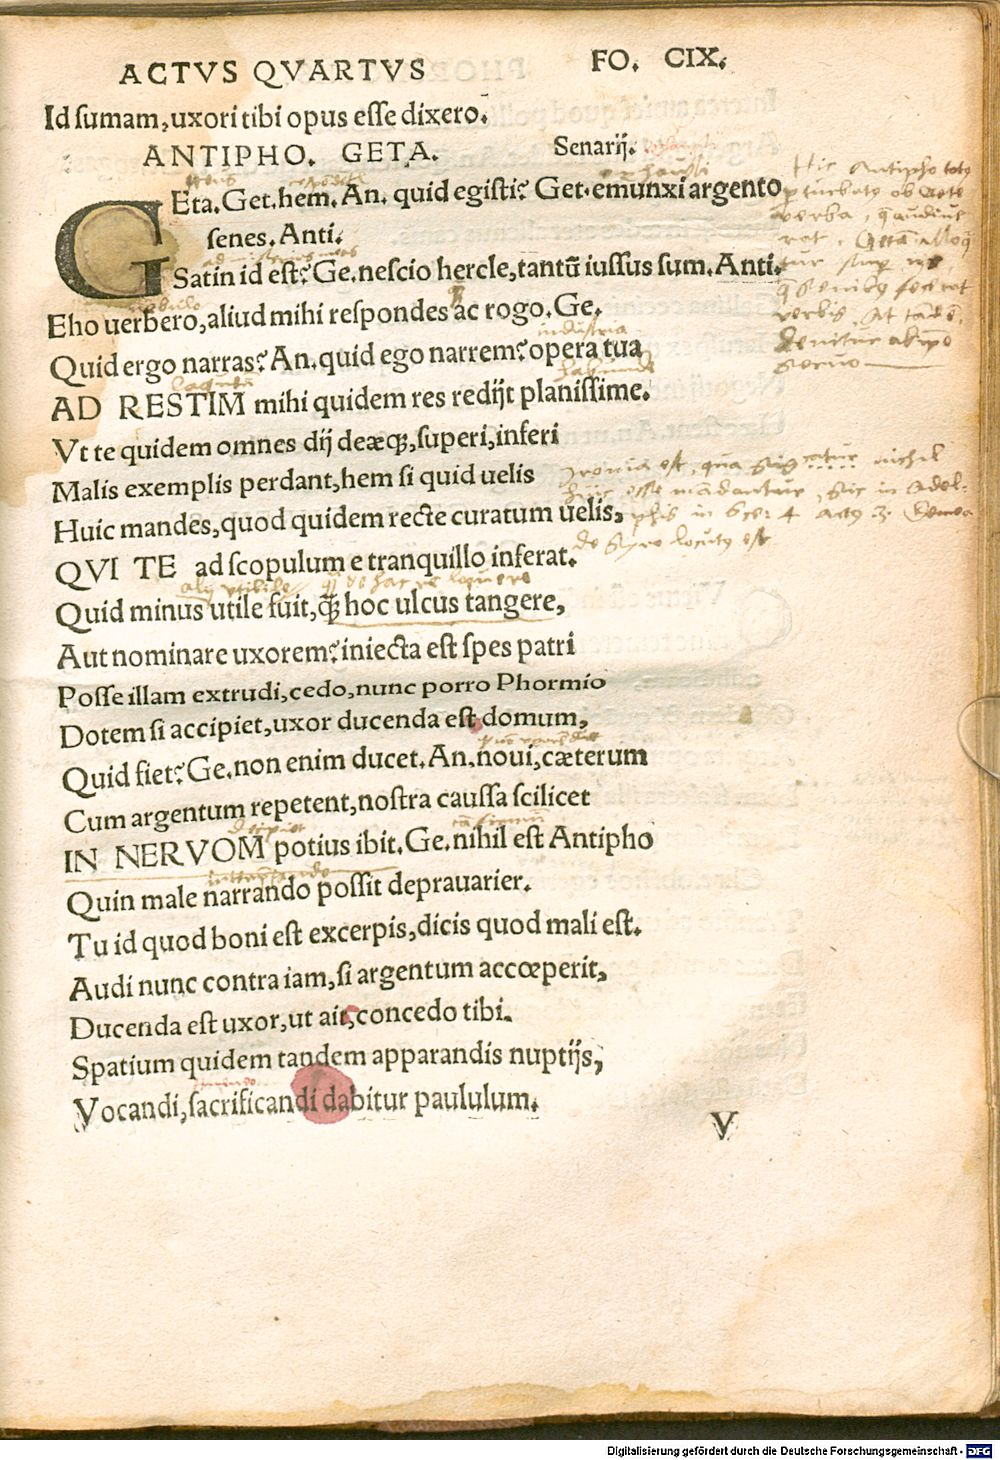 ACTVS QVARTVS FO. CIX.
Id sumam,uxori tibi opus esse dixero.
ANTIPHO. GETA. Senarij.
GEta. Get.hem. An. quid egisti? Get.emunxi argento
senes. Anti.
Satin id est? Ge.nescio hercle,tantū iussus sum. Anti.
Eho uerbero,aliud mihi respondes ac rogo. Ge.
Quid ergo narras? An.quid ego narrem? opera tua
AD RESTIM mihi quidem res redijt planissime.
Vt te quidem omnes dij deæq;,superi,inferi
Malis exemplis perdant,hem si quid uelis
Huic mandes,quod quidem recte curatum uelis,
QVI TE ad scopulum e tranquillo inferat.
Quid minus utile fuit,q̄ hoc ulcus tangere,
Aut nominare uxorem? iniecta est spes patri
Posse illam extrudi,cedo,nunc porro Phormio
Dotem si accipiet,uxor ducenda est domum,
Quid fiet? Ge.non enim ducet. An.noui,cæterum
Cum argentum repetent,nostra caussa scilicet
IN NERVOM potius ibit. Ge.nihil est Antipho
Quin male narrando possit deprauarier.
Tu id quod boni est excerpis,dicis quod mali est.
Audi nunc contra iam,si argentum accœperit,
Ducenda est uxor,ut ais,concedo tibi.
Spatium quidem tandem apparandis nuptijs,
Vocandi,sacrificandi dabitur paululum.
V
Hic Antipho
verba
verbis
servo
industria
Ironia est, qua nichil
in Adel-
phis in Sce: 4 Demea
locutus est
Digitalisierung gefördert durch die Deutsche Forschungsgemeinschaft - DFG